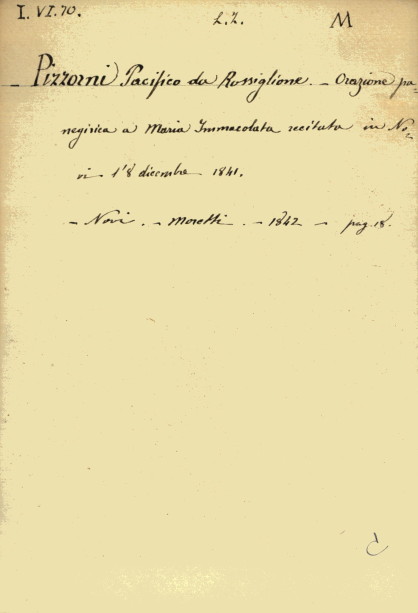 I. VI. 70. L. L. M
Pizzorni Pacifico da Rossiglione. - Orazione pa=
negirica a Maria Immacolata recitata in No=
vi l'8 dicembre 1841.
- Novi. - Moretti. - 1842 - pag. 18.